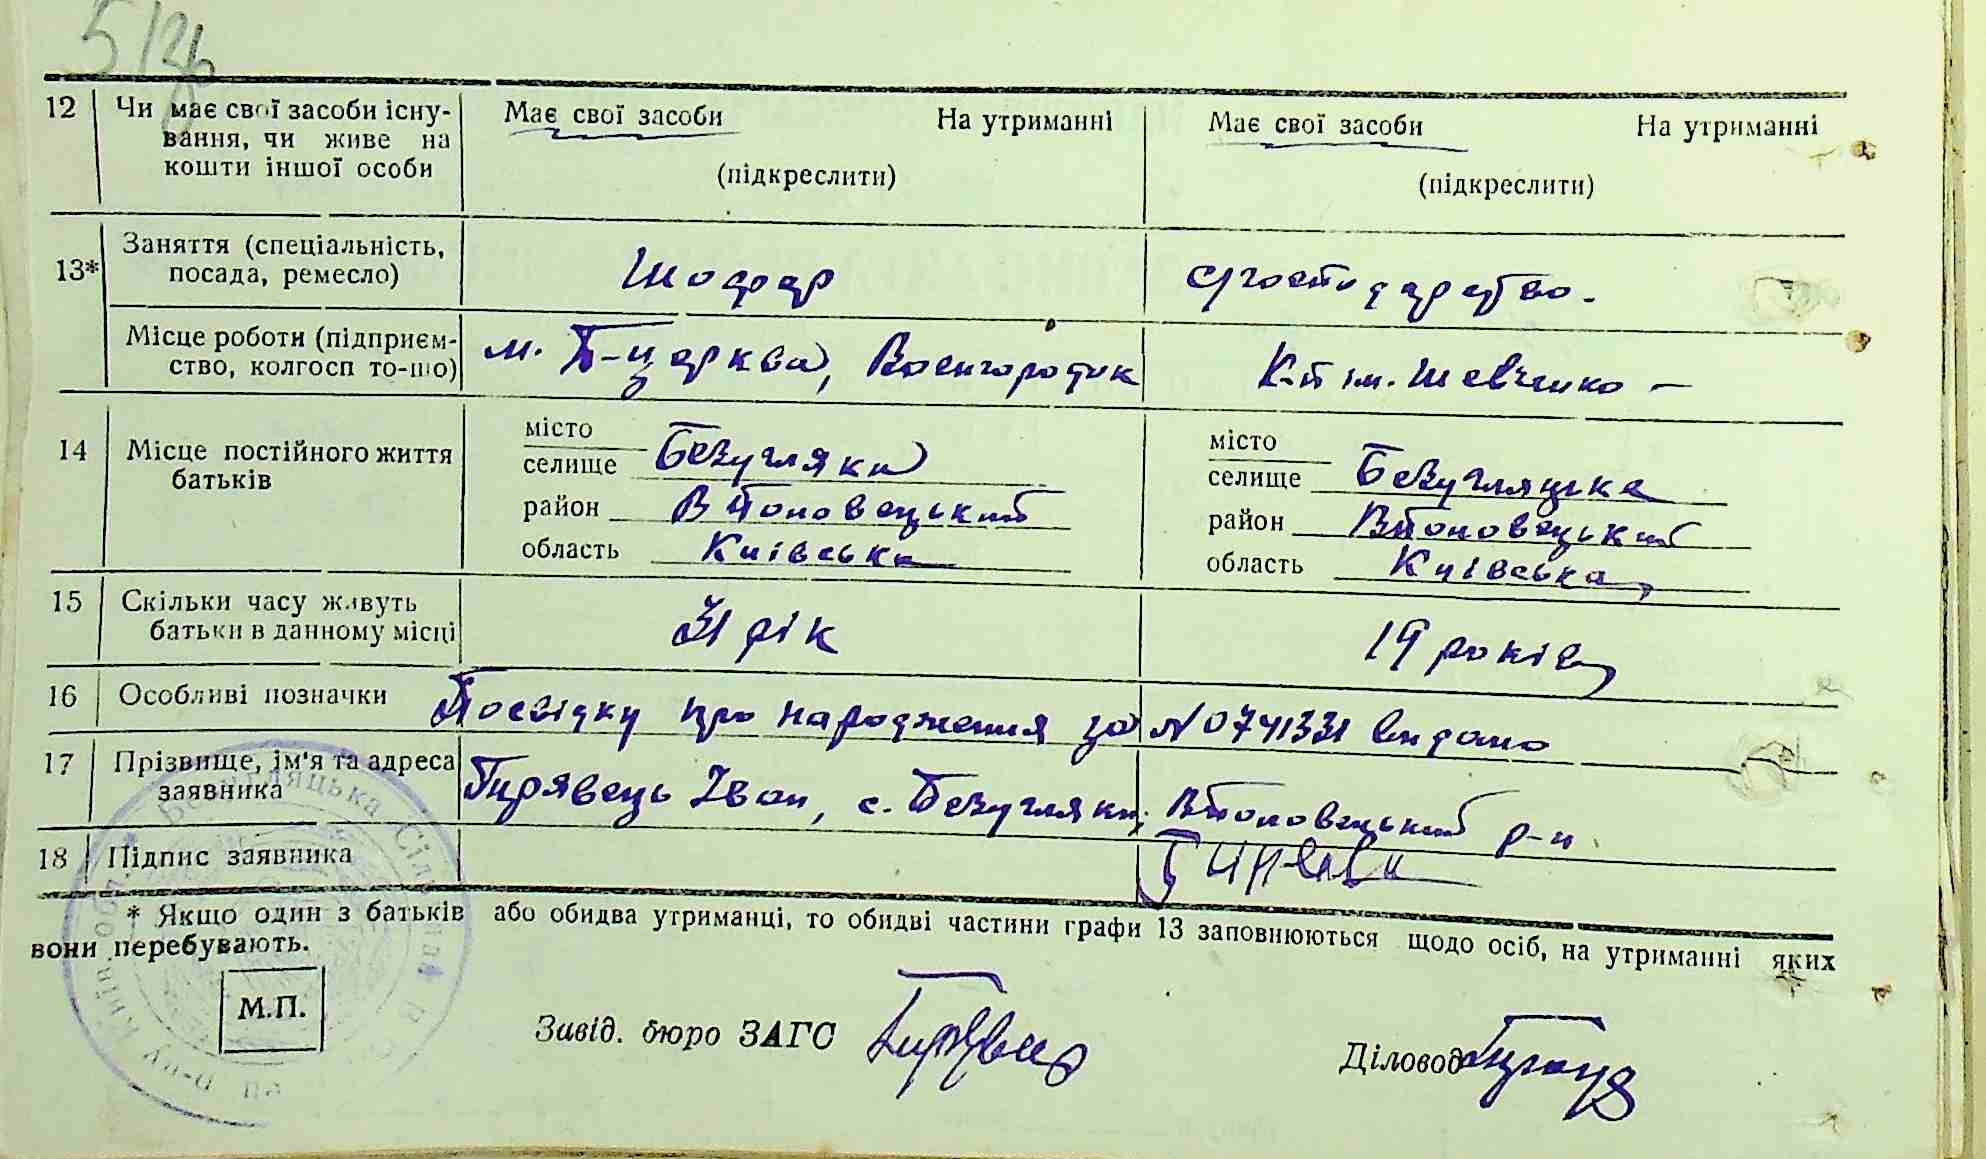 12 Чи має свої засоби існу-
вання, чи живе на
кошти іншої особи
Має свої засоби На утриманні
(підкреслити)
Має свої засоби На утриманні
(підкреслити)
13* Заняття (спеціальність,
посада, ремесло)
Шофер
Місце роботи (підприєм-
ство, колгосп то-що)
м. Б-церква, Воєнгородик
К-п ім. Шевченко -
14 Місце постійного життя
батьків
місто
селище Безугляки
район
область Київська
місто
селище
район
область Київська
15 Скільки часу живуть
батьки в данному місці
31 рік
19 років
16 Особливі позначки Посвідку про народження за № 0741331 видано
17 Прізвище, ім'я та адреса
заявника
Гирявець Іван, с. Безугляки, р-н
18 Підпис заявника
* Якщо один з батьків або обидва утриманці, то обидві частини графи 13 заповнюються щодо осіб, на утриманні яких
вони перебувають.
М.П.
Завід. бюро ЗАГС
Діловод